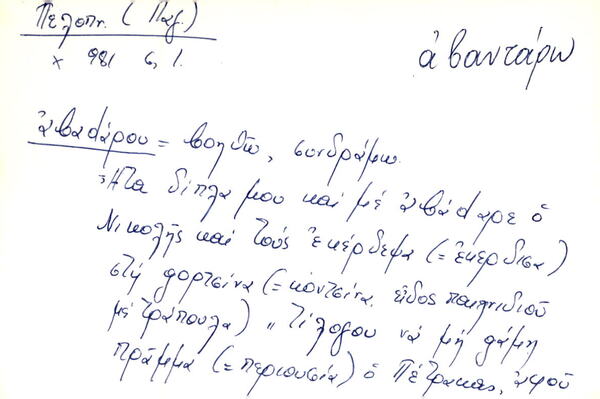 Πελοπν. (Παξ.)
x 981 6, 1.
ἀβαντάρω
ἀβαdάρου = βοηθῶ, συνδράμω.
Ἤτα δίπλα μου καὶ μὲ ἀβάdαρε ὁ
Νικολῆς καὶ τοὺς ἐκέρδεψα (= ἐκέρδισα)
στὴ φορτσίνα (= κοντσίνα. εἶδος παιγνιδιοῦ
μὲ τράπουλα) „ Τί λόγου νὰ μὴ φάμη
πρᾶμμα (= περιουσία) ὁ Πέτρακας, ἀφοῦ